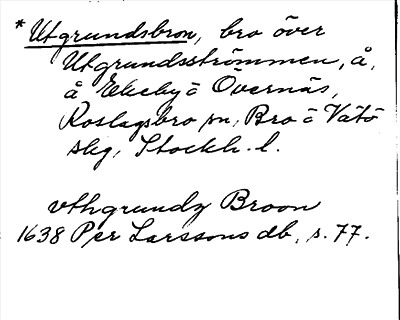 * Utgrundsbron, bro över
Utgrundsströmmen, å,
å Ekeby ö Övernäs,
Roslagsbro sn, Bro ö Vätö
slg, Stockh. l.
vthgrundz Broon
1638 Per Larssons db, s. 77.